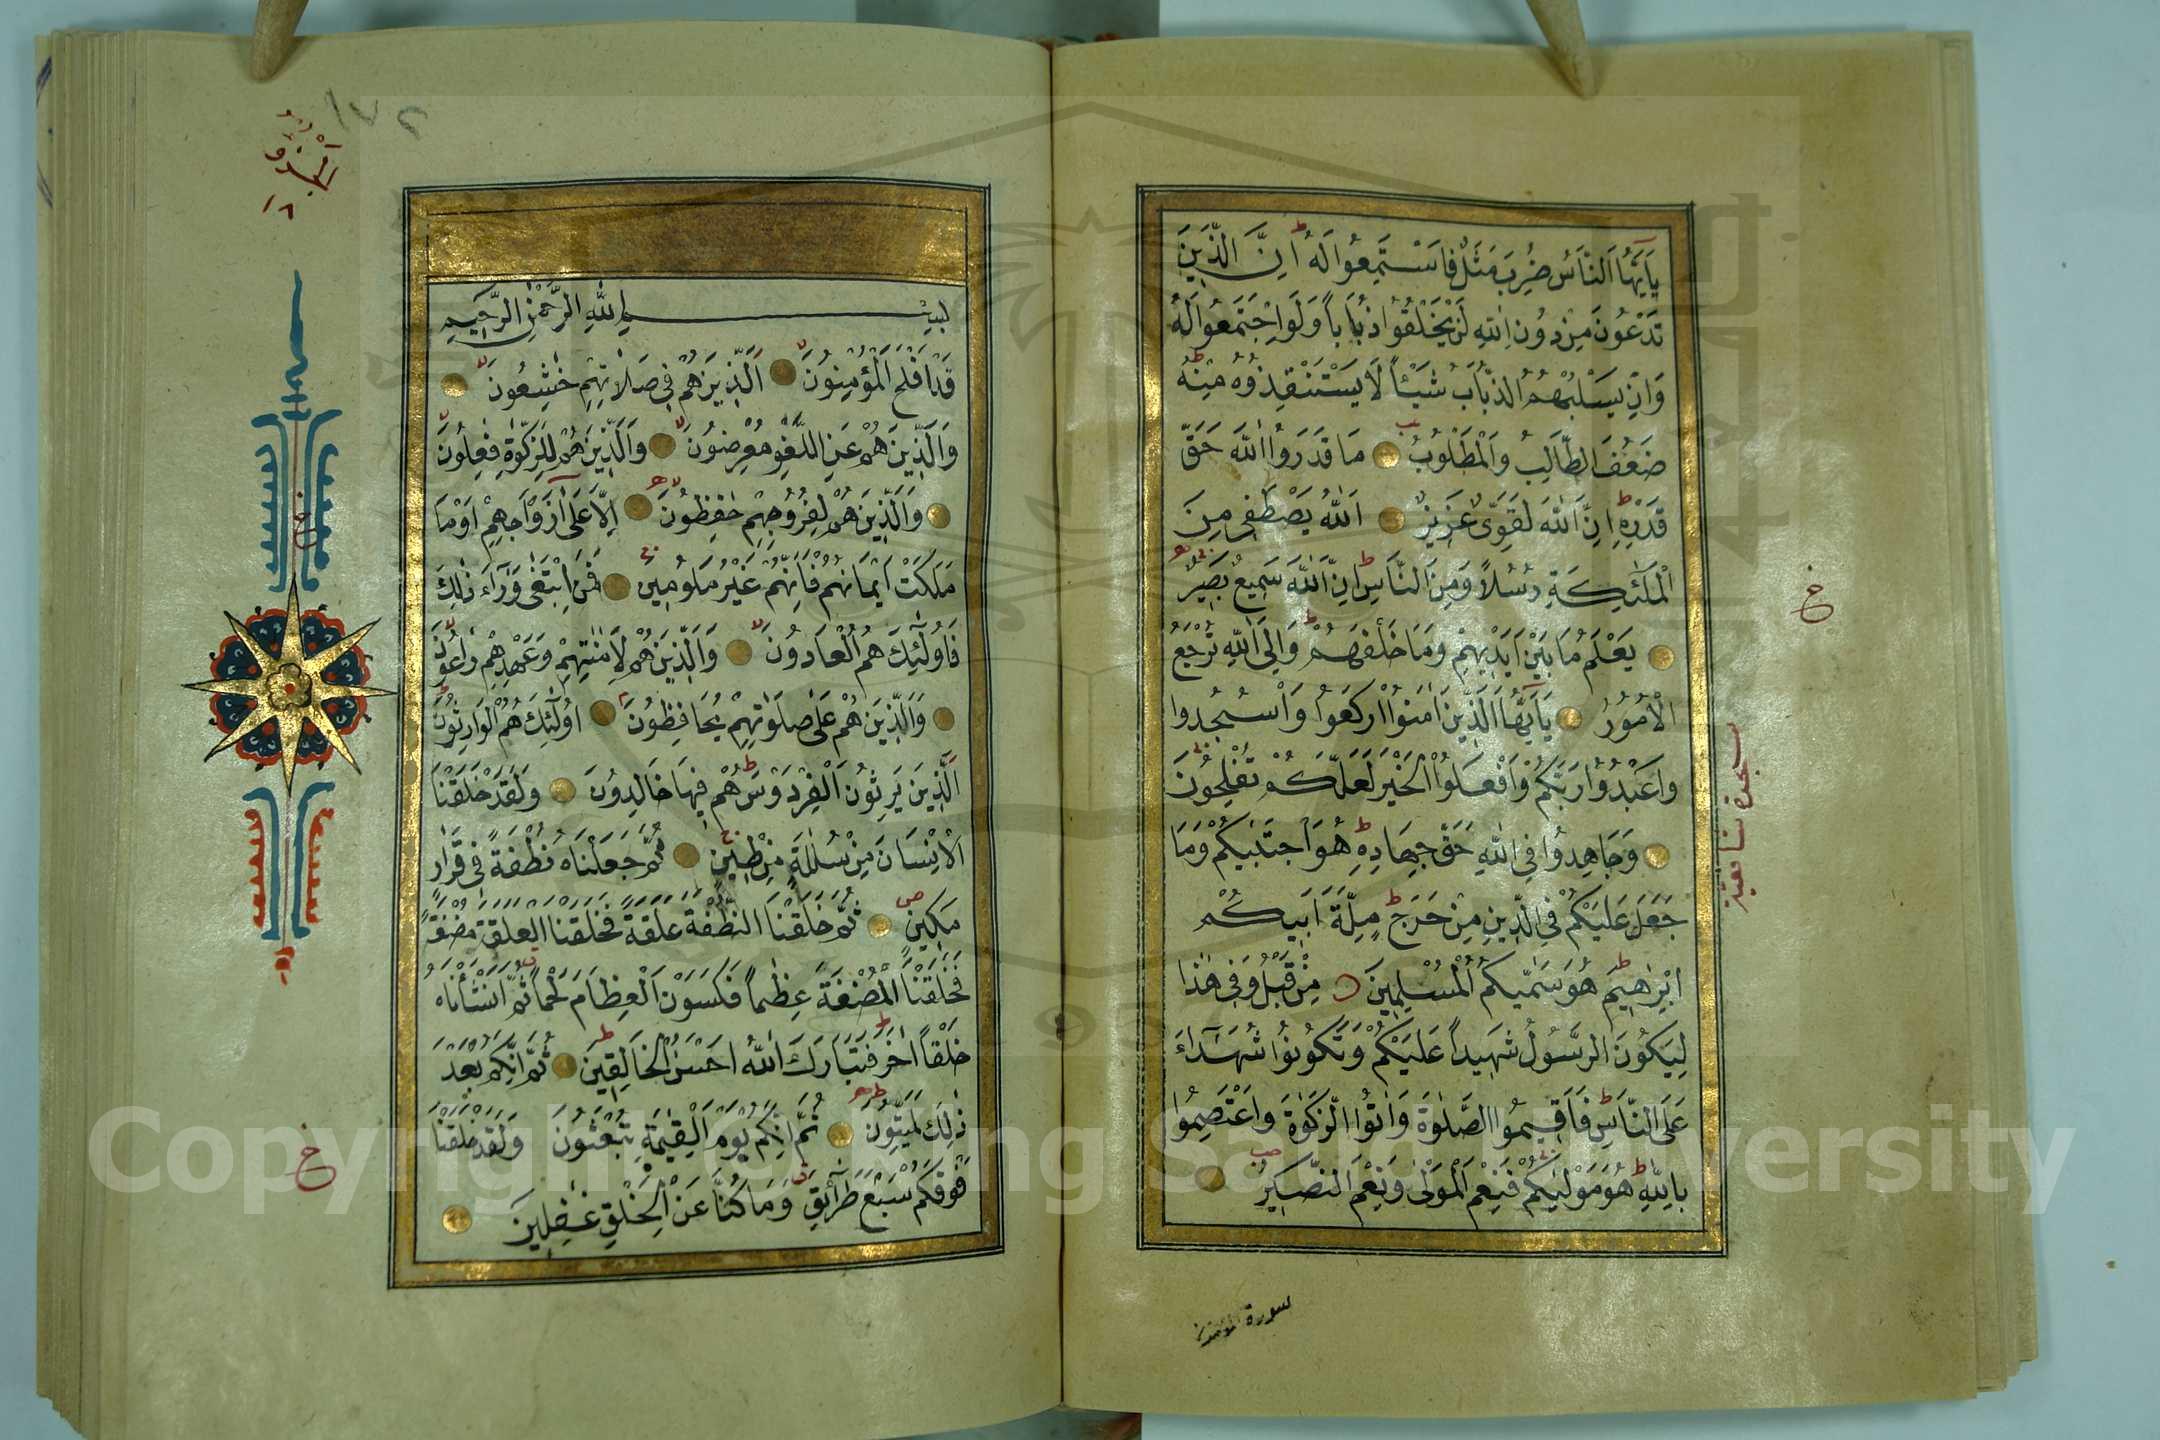 يَآيُّهَا النَّاسُ ضُرِبَ مَثَلٌ فَاسْتَمِعُوا لَهُ ط اِنَّ الَّذِينَ
تَدْعُونَ مِنْ دُونِ اللّٰهِ لَنْ يَخْلُقُوا ذُبَاباً وَلَوِ اجْتَمَعُوا لَهُ
وَاِنْ يَسْلُبْهُمُ الذُّبَابُ شَيْئاً لَا يَسْتَنْقِذُوهُ مِنْهُ ط
ضَعُفَ الطَّالِبُ وَالْمَطْلُوبُ مَا قَدَرُوا اللّٰهَ حَقَّ
قَدْرِهِ ط اِنَّ اللّٰهَ لَقَوِىٌّ عَزِيزٌ اَللّٰهُ يَصْطَفِى مِنَ
الْمَلٰئِكَةِ رُسُلاً وَمِنَ النَّاسِ ط اِنَّ اللّٰهَ سَمِيعٌ بَصِيرٌ
يَعْلَمُ مَا بَيْنَ اَيْدِيهِمْ وَمَا خَلْفَهُمْ ط وَاِلَى اللّٰهِ تُرْجَعُ
الْاُمُورُ يَآيُّهَا الَّذِينَ اٰمَنُوا ارْكَعُوا وَاسْجُدُوا
وَاعْبُدُوا رَبَّكُمْ وَافْعَلُوا الْخَيْرَ لَعَلَّكُمْ تُفْلِحُونَ
وَجَاهِدُوا فِى اللّٰهِ حَقَّ جِهَادِهِ ط هُوَ اجْتَبٰيكُمْ وَمَا
جَعَلَ عَلَيْكُمْ فِى الدِّينِ مِنْ حَرَجٍ ط مِلَّةَ اَبِيكُمْ
اِبْرٰهِيمَ ط هُوَ سَمّٰيكُمُ الْمُسْلِمِينَ مِنْ قَبْلُ وَفِى هٰذَا
لِيَكُونَ الرَّسُولُ شَهِيداً عَلَيْكُمْ وَتَكُونُوا شُهَدَآءَ
عَلَى النَّاسِ ط فَاَقِيمُوا الصَّلٰوةَ وَاٰتُوا الزَّكٰوةَ وَاعْتَصِمُوا
بِاللّٰهِ ط هُوَ مَوْلٰيكُمْ فَنِعْمَ الْمَوْلٰى وَنِعْمَ النَّصِيرُ
خ
سجدة شافعية
سورة المؤمنون
١٧٢
الجزؤ
١٨
بِسْمِ اللّٰهِ الرَّحْمٰنِ الرَّحِيمِ
قَدْ اَفْلَحَ الْمُؤْمِنُونَ لا اَلَّذِينَ هُمْ فِى صَلَاتِهِمْ خٰشِعُونَ لا
وَالَّذِينَ هُمْ عَنِ اللَّغْوِ مُعْرِضُونَ لا وَالَّذِينَ هُمْ لِلزَّكٰوةِ فٰعِلُونَ لا
وَالَّذِينَ هُمْ لِفُرُوجِهِمْ حٰفِظُونَ لا اِلَّا عَلٰى اَزْوَاجِهِمْ اَوْ مَا
مَلَكَتْ اَيْمَانُهُمْ فَاِنَّهُمْ غَيْرُ مَلُومِينَ فَمَنِ ابْتَغٰى وَرَآءَ ذٰلِكَ
فَاُولٰئِكَ هُمُ الْعَادُونَ لا وَالَّذِينَ هُمْ لِاَمٰنٰتِهِمْ وَعَهْدِهِمْ رَاعُونَ لا
وَالَّذِينَ هُمْ عَلٰى صَلَوٰتِهِمْ يُحَافِظُونَ اُولٰئِكَ هُمُ الْوَارِثُونَ
الَّذِينَ يَرِثُونَ الْفِرْدَوْسَ ط هُمْ فِيهَا خَالِدُونَ وَلَقَدْ خَلَقْنَا
الْاِنْسَانَ مِنْ سُلٰلَةٍ مِنْ طِينٍ ثُمَّ جَعَلْنَاهُ نُطْفَةً فِى قَرَارٍ
مَكِينٍ ص ثُمَّ خَلَقْنَا النُّطْفَةَ عَلَقَةً فَخَلَقْنَا الْعَلَقَةَ مُضْغَةً
فَخَلَقْنَا الْمُضْغَةَ عِظٰماً فَكَسَوْنَا الْعِظَامَ لَحْماً ثُمَّ اَنْشَأْنَاهُ
خَلْقاً اٰخَرَ ط فَتَبَارَكَ اللّٰهُ اَحْسَنُ الْخَالِقِينَ ط ثُمَّ اِنَّكُمْ بَعْدَ
ذٰلِكَ لَمَيِّتُونَ ط ثُمَّ اِنَّكُمْ يَوْمَ الْقِيٰمَةِ تُبْعَثُونَ وَلَقَدْ خَلَقْنَا
فَوْقَكُمْ سَبْعَ طَرَآئِقَ وَمَا كُنَّا عَنِ الْخَلْقِ غٰفِلِينَ
خ
خ
Copyright © King Saud University